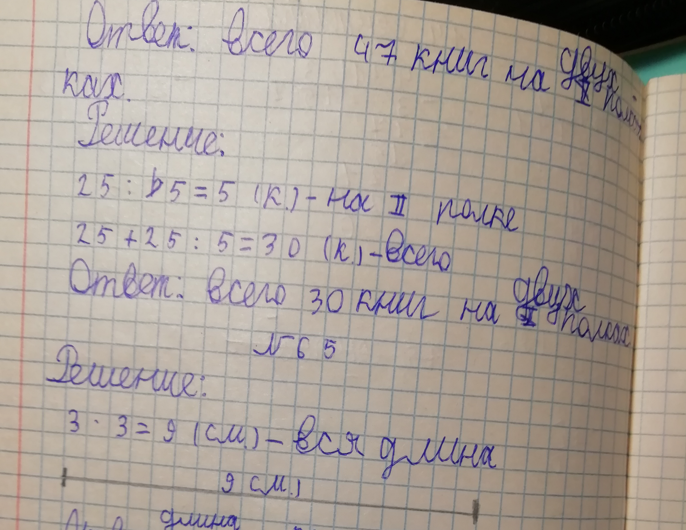 Ответ: всего 47 книг на двух пол-
ках.
Решение:
25 : 5 = 5 (к) - на II полке
25 + 25 : 5 = 30 (к) - всего
Ответ: всего 30 книг на двух полках
№ 65
Решение:
3 · 3 = 9 (см.) - вся длина
9 см.)
длина